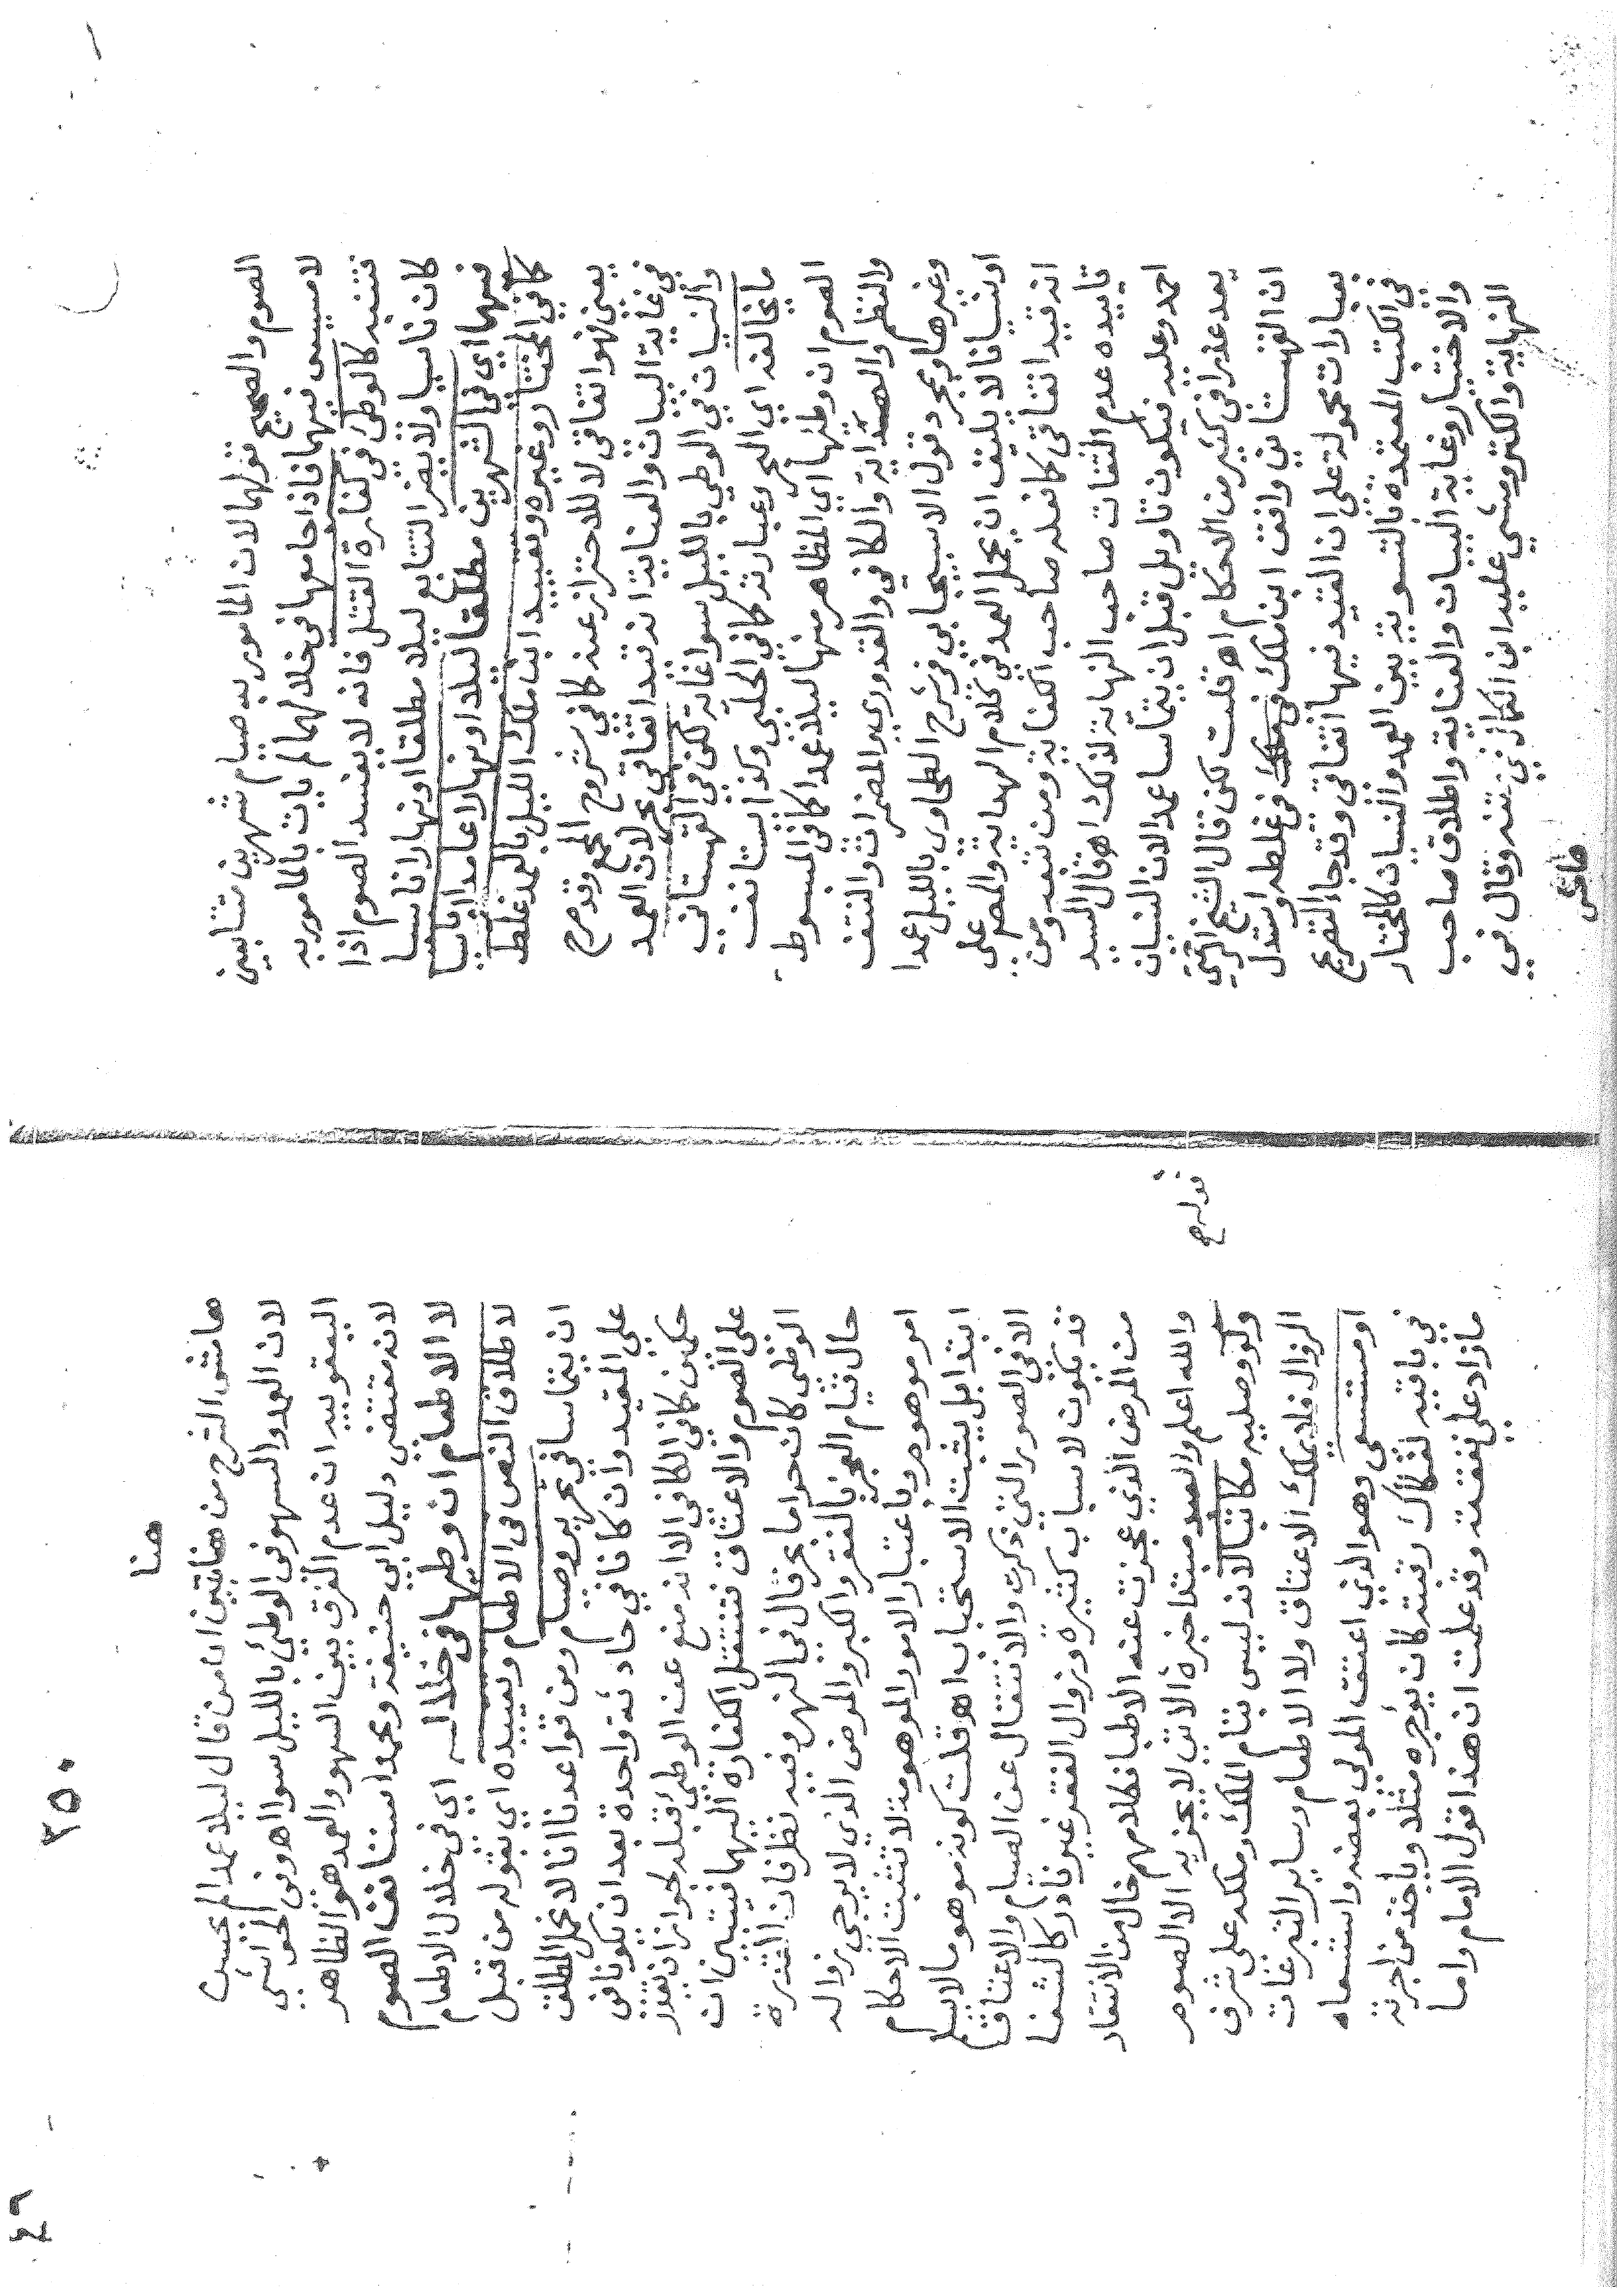 الصوم والصحيح قولهما لان المامور به صيام شهرين متتابعين
لا مسيس فيهما فاذا جامعها في خلالهما لم يات بالمامور به
فتنبه كالوطئ في كفارة القتل فانه لا يفسد الصوم اذا
كان ناسيا ولا يضر التتابع ليلا مطلقا او نهارا ناسيا
فيهما اي في الشهرين مطلقا ليلا او نهارا عامدا او ناسيا
كما في المختار وغيره وتقييد ابن ملك الليل بالعمد غلط
يعني فهو اتفاقي لا للاحتراز عنه كما في شروح المجمع وقد صرح
في غاية البيان والعناية انه قيد اتفاقي بحر لان العمد
والنسيان في الوطي بالليل سوا غاية لكن في القهستاني
ما يخالفه اي البحر وعبارته كما في الحلبي وكذا استانف
الصوم ان وطئها اي المظاهر منها ليلا عمدا كما في المبسوط
والنظم والهداية والكافي والقدوري والمضمرات والنتف
وغيرها وبمجرد قول الاسبيجابي في شرح الطحاوي بالليل عمدا
او نسيانا لا يليق ان يحمل العمد في كلام الهداية والمص على
انه قيد اتفاقي كما فعله صاحب الكفاية ومن تبعه ومن
تاييده عدم التفات صاحب النهاية لذلك اهـ قال السيد
احمد وعليه فيكون تاويل قبل ان يتماسا عمدا لان النسيان
يعد عذرا في كثير من الاحكام اهـ قلت لكن قال الشيخ الرحمتي
ان القهستاني وافق ابن ملك في غلطه واستدل
بعبارات محمولة على ان القيد فيها اتفاقي وقد جا التصريح
في الكتب المعتمدة بالتسوية بين العمد والنسيان كالمختار
والاختيار وغاية البيان والعناية واطلاق صاحب
النهاية والكنز ومشى عليه ابن الكمال في متنه وقال في
هامش
هنا
٢٥٠
٤٩
هامش الشرح من هنا تبين ان من قال ليلا عمدا لم يحسن
لان العمد والسهو في الوطئ بالليل سوا اهـ وفي الحواشي
اليعقوبيه ان عدم الفرق بين السهو والعمد هو الظاهر
لانه مقتضى دليل ابي حنيفة ومحمد استانف الصوم
لا الاطعام ان وطيها في خلاله اي في خلال الاطعام
لاطلاق النص في الاطعام وتقييده اي بقوله من قبل
ان يتماسا في تحرير وصيام ومن قواعدنا انا لا نحمل المطلق
على المقيد وان كانا في حادثة واحدة بعد ان يكونا في
حكمين كما في الكافي الا انه منع عن الوطئ قبله لجواز ان يقدر
على الصوم والاعتاق فتنتقل الكفارة اليهما فيتبين ان
الوطئ كان حراما بحر قال في النهر وفيه نظر فان القدرة
حال قيام العجز بالفقر والكبر والمرض الذي لا يرجى زواله
امر موهوم وباعتبار الامور الموهومة لا تثبت الاحكام
ابتدا بل يثبت الاستحباب اهـ قلت كونه موهوما لا يسلم
الا في الصور التي ذكرت والانتقال عن الصيام والاعتاق
قد يكون لاسباب كثيرة وزوال الفقر غير نادر كالشفا
من المرض الذي عجزت عنه الاطبا فكلامهم خال من الانتقاد
والله اعلم والعبد مبتدا خبره الاتي لا يجزيه الا الصوم
ولو وصليه مكاتبا لانه ليس بتام الملك وملكه على شرف
الزوال فلا يملك الاعتاق ولا الاطعام وساير التبرعات
او مستسعى وهو الذي اعتق المولى بعضه واستسعاه
في باقيه لفكاك رقبته كان يؤجره مثلا وياخذ من اجرته
ما زاد على نفقته وقد علمت ان هذا قول الامام واما
قوله ح